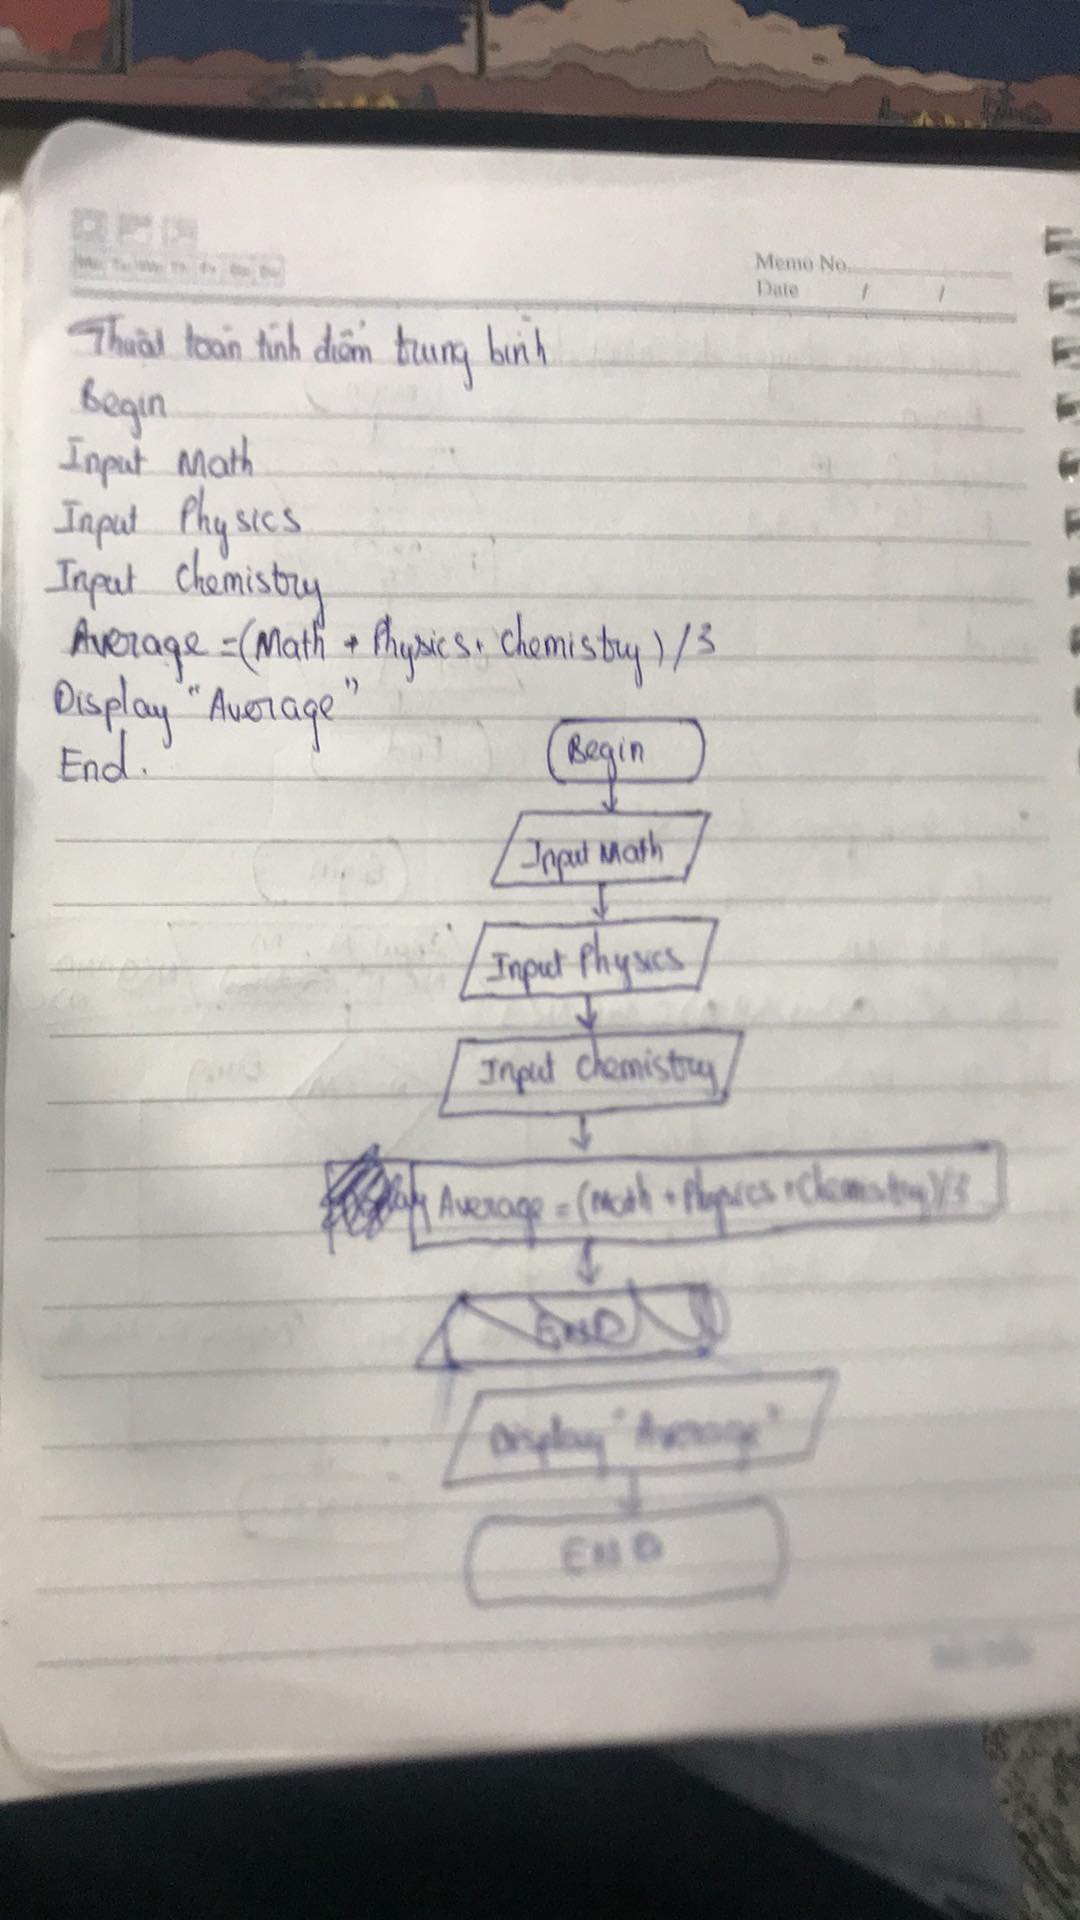 Memo No.
Date / /
Thuật toán tính điểm trung bình
Begin
Input Math
Input Physics
Input Chemistry
Average = (Math + Physics + Chemistry) / 3
Display "Average"
End.
Begin
Input Math
Input Physics
Input Chemistry
Average = (Math + Physics + Chemistry)/3
END
Display "Average"
END